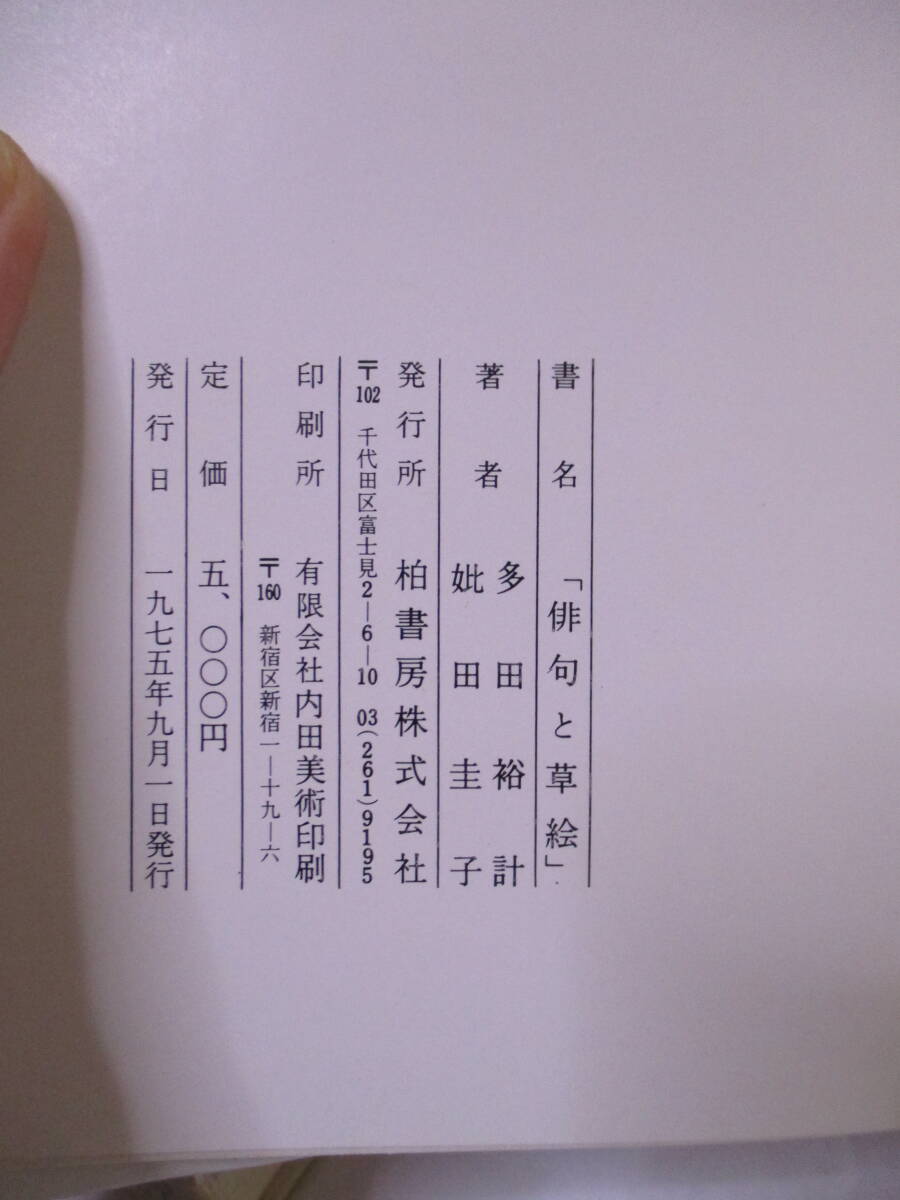 書名 「俳句と草絵」
著者 多田裕計
妣田圭子
発行所 柏書房株式会社
〒102 千代田区富士見2―6―10 03(261)9195
印刷所 有限会社内田美術印刷
〒160 新宿区新宿一―十九―六
定価 五、〇〇〇円
発行日 一九七五年九月一日発行